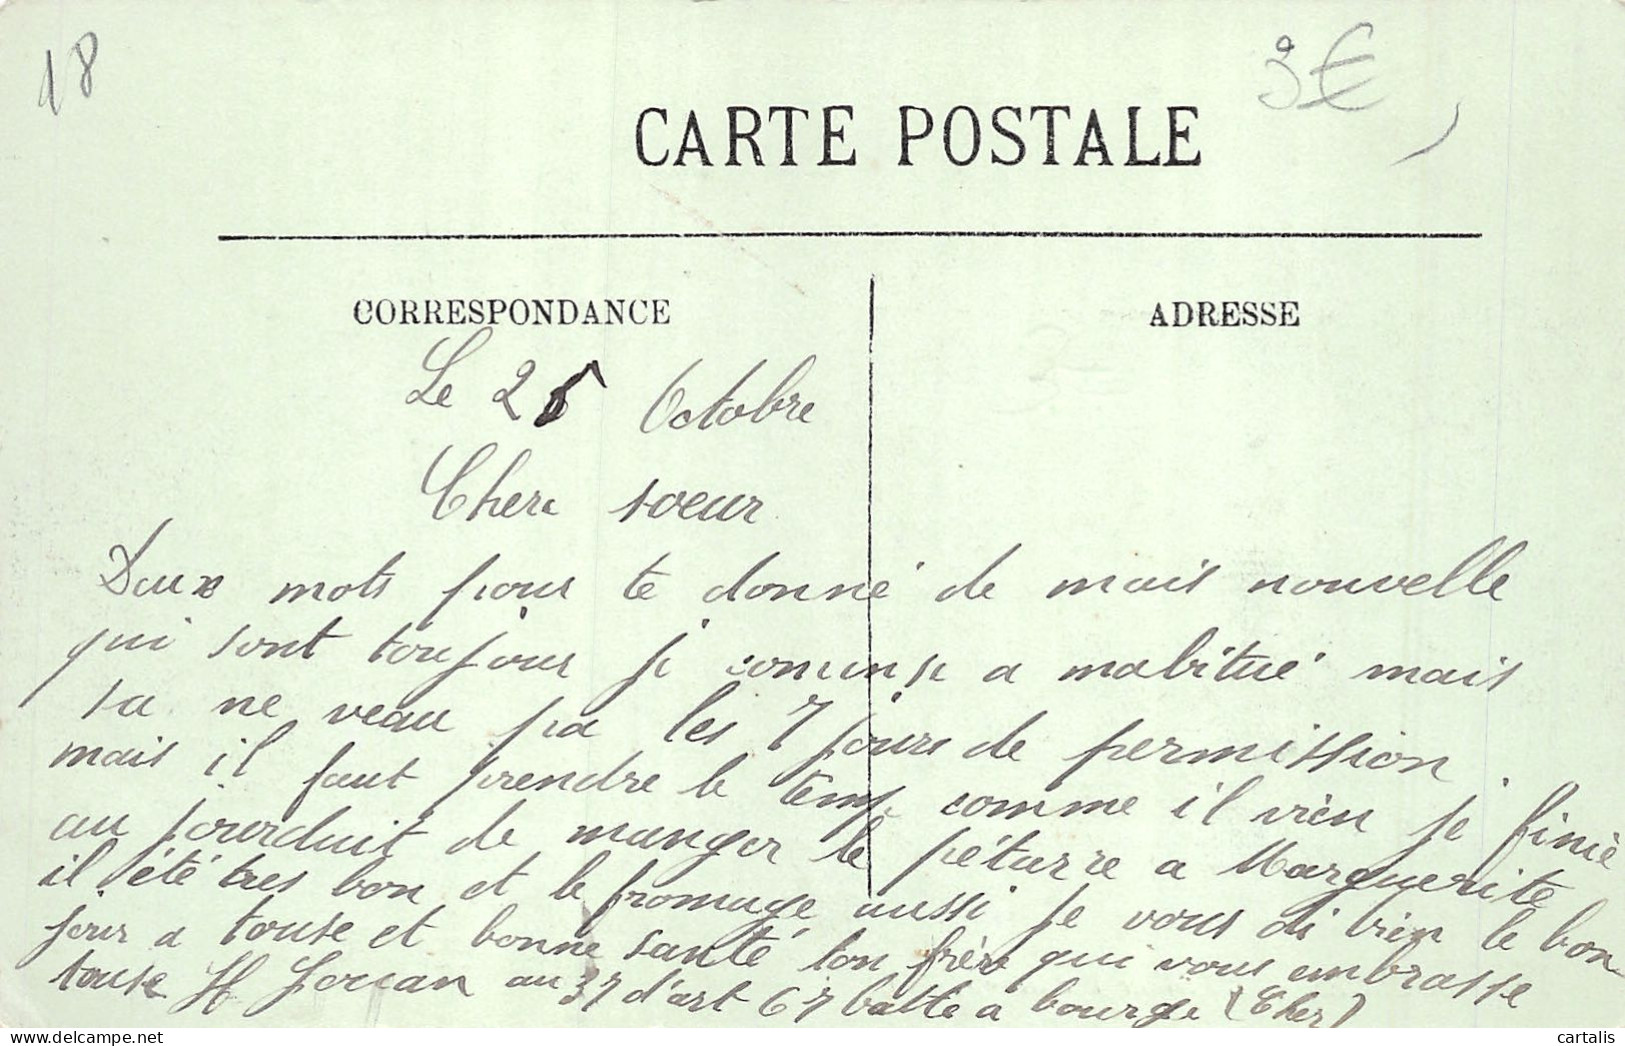 18
3€
CARTE POSTALE
CORRESPONDANCE
ADRESSE
Le 25 Octobre
Chere soeur
Deux mots pour te donné de mais nouvelle
qui sont toujour je comense a mabitué mais
sa ne veau pa les 7 jours de permission
mais il faut prendre le temp comme il vien je finie
au jourduit de manger le péturre a Marguerite
il été tres bon et le fromage aussi je vous di bien le bon
jour a touse et bonne santé ton frère qui vous embrasse
touse H au 37 d'art 67 batte a bourge (Cher)
cartalis